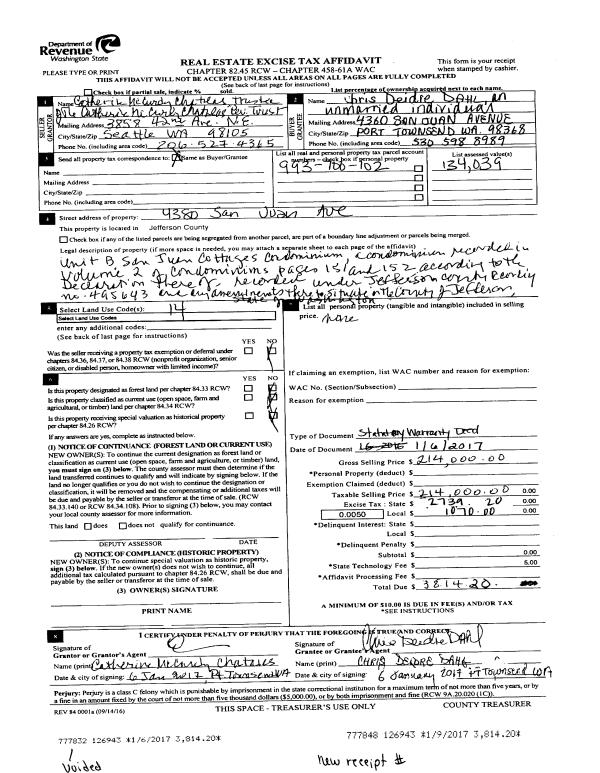 Department of
Revenue
Washington State
REAL ESTATE EXCISE TAX AFFIDAVIT
This form is your receipt
when stamped by cashier.
PLEASE TYPE OR PRINT
CHAPTER 82.45 RCW – CHAPTER 458-61A WAC
THIS AFFIDAVIT WILL NOT BE ACCEPTED UNLESS ALL AREAS ON ALL PAGES ARE FULLY COMPLETED
(See back of last page for instructions)
Check box if partial sale, indicate % sold.
List percentage of ownership acquired next to each name.
1 SELLER GRANTOR
Name Catherine McCurdy Chatalas Trustee
Catherine McCurdy Chatalas Trust
Mailing Address 3858 42nd Ave. N.E.
City/State/Zip Seattle WA 98105
Phone No. (including area code) 206-527-4365
2 BUYER GRANTEE
Name Chris Deidre DAHL an
unmarried individual
Mailing Address 4360 SAN JUAN AVENUE
City/State/Zip PORT TOWNSEND WA. 98368
Phone No. (including area code) 530 598 8989
3 Send all property tax correspondence to: Same as Buyer/Grantee
Name
Mailing Address
City/State/Zip
Phone No. (including area code)
List all real and personal property tax parcel account
numbers – check box if personal property
993-700-102
List assessed value(s)
134,039
4 Street address of property: 4380 San Juan Ave
This property is located in Jefferson County
Check box if any of the listed parcels are being segregated from another parcel, are part of a boundary line adjustment or parcels being merged.
Legal description of property (if more space is needed, you may attach a separate sheet to each page of the affidavit)
Unit B San Juan Cottages Condominium, a condominium recorded in
Volume 2 of Condominiums pages 151 and 152 according to the
Declaration thereof recorded under Jefferson County Recording
no. 495643 and any amendments thereto situate in the County of Jefferson,
State of Washington
5 Select Land Use Code(s): 14
Select Land Use Codes
enter any additional codes:
(See back of last page for instructions)
YES NO
Was the seller receiving a property tax exemption or deferral under
chapters 84.36, 84.37, or 84.38 RCW (nonprofit organization, senior
citizen, or disabled person, homeowner with limited income)?
6 YES NO
Is this property designated as forest land per chapter 84.33 RCW?
Is this property classified as current use (open space, farm and
agricultural, or timber) land per chapter 84.34 RCW?
Is this property receiving special valuation as historical property
per chapter 84.26 RCW?
If any answers are yes, complete as instructed below.
(1) NOTICE OF CONTINUATION (FOREST LAND OR CURRENT USE)
NEW OWNER(S): To continue the current designation as forest land or
classification as current use (open space, farm and agriculture, or timber) land,
you must sign on (3) below. The county assessor must then determine if the
land transferred continues to qualify and will indicate by signing below. If the
land no longer qualifies or you do not wish to continue the designation or
classification, it will be removed and the compensating or additional taxes will
be due and payable by the seller or transferor at the time of sale. (RCW
84.33.140 or RCW 84.34.108). Prior to signing (3) below, you may contact
your local county assessor for more information.
This land does does not qualify for continuance.
DEPUTY ASSESSOR DATE
(2) NOTICE OF COMPLIANCE (HISTORIC PROPERTY)
NEW OWNER(S): To continue special valuation as historic property,
sign (3) below. If the new owner(s) does not wish to continue, all
additional tax calculated pursuant to chapter 84.26 RCW, shall be due and
payable by the seller or transferor at the time of sale.
(3) OWNER(S) SIGNATURE
PRINT NAME
7 List all personal property (tangible and intangible) included in selling
price.
none
If claiming an exemption, list WAC number and reason for exemption:
WAC No. (Section/Subsection)
Reason for exemption
Type of Document Statutory Warranty Deed
Date of Document 1/6/2017
Gross Selling Price $ 214,000.00
*Personal Property (deduct) $
Exemption Claimed (deduct) $
Taxable Selling Price $ 214,000.00 0.00
Excise Tax : State $ 2739.20 0.00
0.0050 Local $ 1070.00 0.00
*Delinquent Interest: State $
Local $
*Delinquent Penalty $
Subtotal $ 0.00
*State Technology Fee $ 5.00
*Affidavit Processing Fee $
Total Due $ 3814.20
A MINIMUM OF $10.00 IS DUE IN FEE(S) AND/OR TAX
*SEE INSTRUCTIONS
8 I CERTIFY UNDER PENALTY OF PERJURY THAT THE FOREGOING IS TRUE AND CORRECT.
Signature of
Grantor or Grantor's Agent
Name (print) Catherine McCurdy Chatalas
Date & city of signing: 6 Jan 2017, Pt. Townsend WA
Signature of
Grantee or Grantee's Agent Chris Deidre DAHL
Name (print) CHRIS DEIDRE DAHL
Date & city of signing: 6 January 2017 PT TOWNSEND WA
Perjury: Perjury is a class C felony which is punishable by imprisonment in the state correctional institution for a maximum term of not more than five years, or by
a fine in an amount fixed by the court of not more than five thousand dollars ($5,000.00), or by both imprisonment and fine (RCW 9A.20.020 (1C)).
REV 84 0001a (09/14/16)
THIS SPACE - TREASURER'S USE ONLY
COUNTY TREASURER
777832 126943 *1/6/2017 3,814.20*
777848 126943 *1/9/2017 3,814.20*
Voided
New receipt #